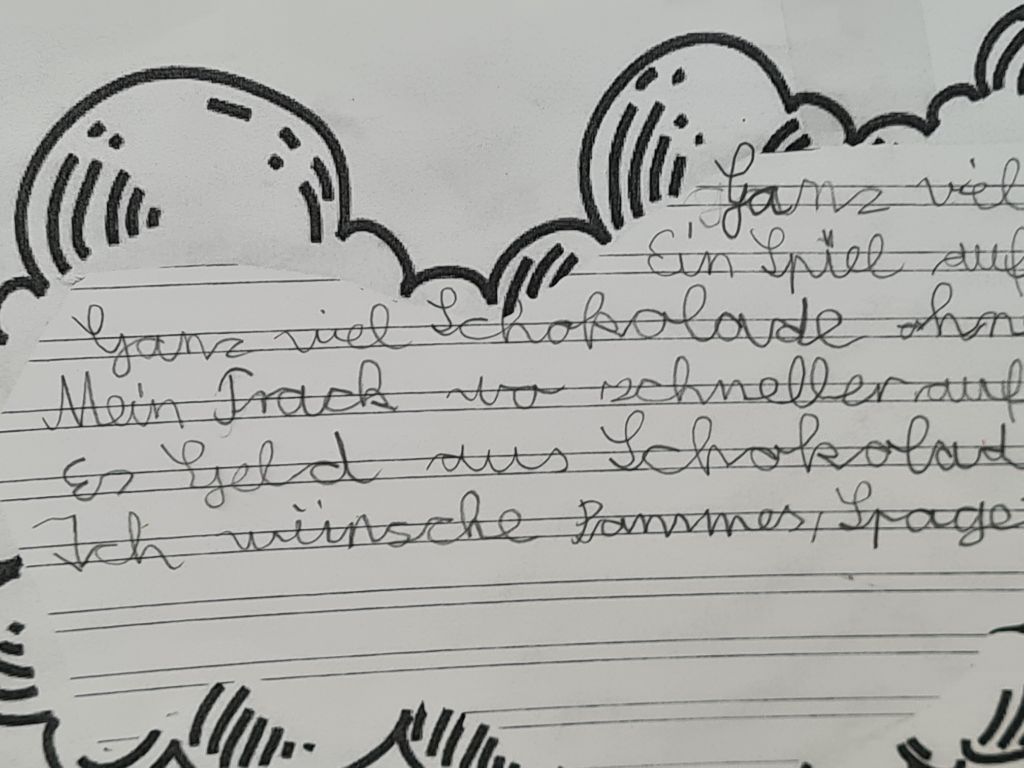 Ganz viel
Ein Spiel auf
Ganz viel Schokolade ohn
Mein Track wo schneller auf
Es Geld aus Schokolad
Ich wünsche Pammes, Spage